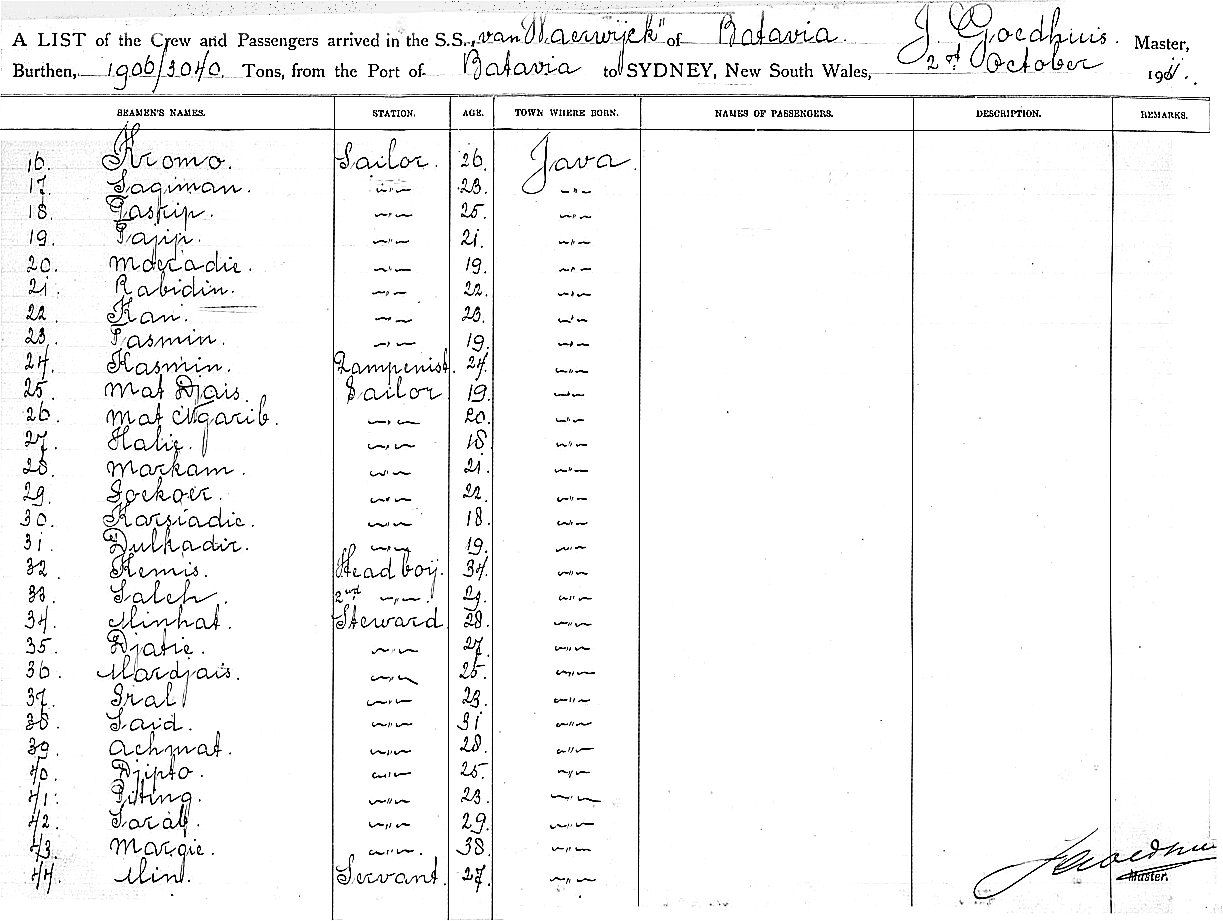 A LIST of the Crew and Passengers arrived in the S.S. "van Waerwijck" of Batavia. J. Goedhuis. Master,
Burthen, 1906/3040. Tons, from the Port of Batavia to SYDNEY, New South Wales, 2nd October 1911.
SEAMEN'S NAMES. STATION. AGE. TOWN WHERE BORN. NAMES OF PASSENGERS. DESCRIPTION. REMARKS.
16. Kromo. Sailor. 26. Java.
17. Sagiman. —"— 23. —"—
18. Gaskip. —"— 25. —"—
19. Pajip. —"— 21. —"—
20. Moeradie. —"— 19. —"—
21. Rabidin. —"— 22. —"—
22. Kan. —"— 23. —"—
23. Tasmin. —"— 19. —"—
24. Kasmin. Lampenist. 24. —"—
25. Mat Djais. Sailor 19. —"—
26. Mat Ngarib. —"— 20. —"—
27. Halie. —"— 18. —"—
28. Markam. —"— 21. —"—
29. Soekoer. —"— 22. —"—
30. Karsiadie. —"— 18. —"—
31. Dulkadir. —"— 19. —"—
32. Kemis. Head boy. 34. —"—
33. Saleh. 2nd —"—. 29. —"—
34. Minhat. Steward 28. —"—
35. Djatie. —"— 27. —"—
36. Mardjais. —"— 25. —"—
37. Sral —"— 23. —"—
38. Said. —"— 31 —"—
39. Achmat. —"— 28. —"—
40. Djipto. —"— 25. —"—
41. Piting. —"— 23. —"—
42. Sarab. —"— 29. —"—
43. Margie. —"— 38. —"—
44. Min. Servant. 27. —"—
J Goedhuis
Master.